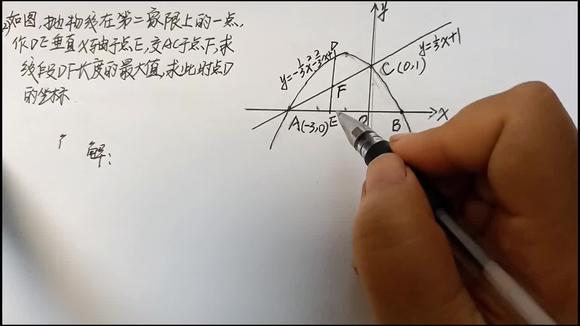 如图,抛物线在第二象限上的一点,
作DE垂直X轴于点E,交AC于点F,求
线段DF长度的最大值,求此时点D
的坐标.
解:
y
D
y=-1/3x²-2/3x+1
y=1/3x+1
C(0,1)
F
A(-3,0)
E
B
x